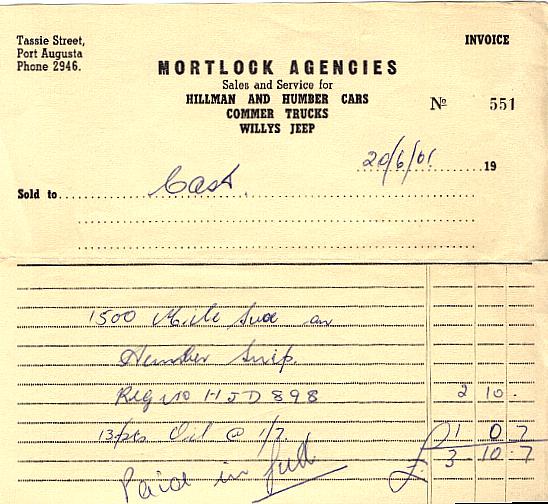 Tassie Street,
Port Augusta
Phone 2946.
INVOICE
MORTLOCK AGENCIES
Sales and Service for
HILLMAN AND HUMBER CARS
COMMER TRUCKS
WILLYS JEEP
No 551
20/6/61. 19
Sold to Cash.
1500 Mile on
Humber Snip.
Reg no HJD898 2 10 .
13 pts Oil @ 1/7. 1 0 7
Paid in full £ 3 - 10 - 7